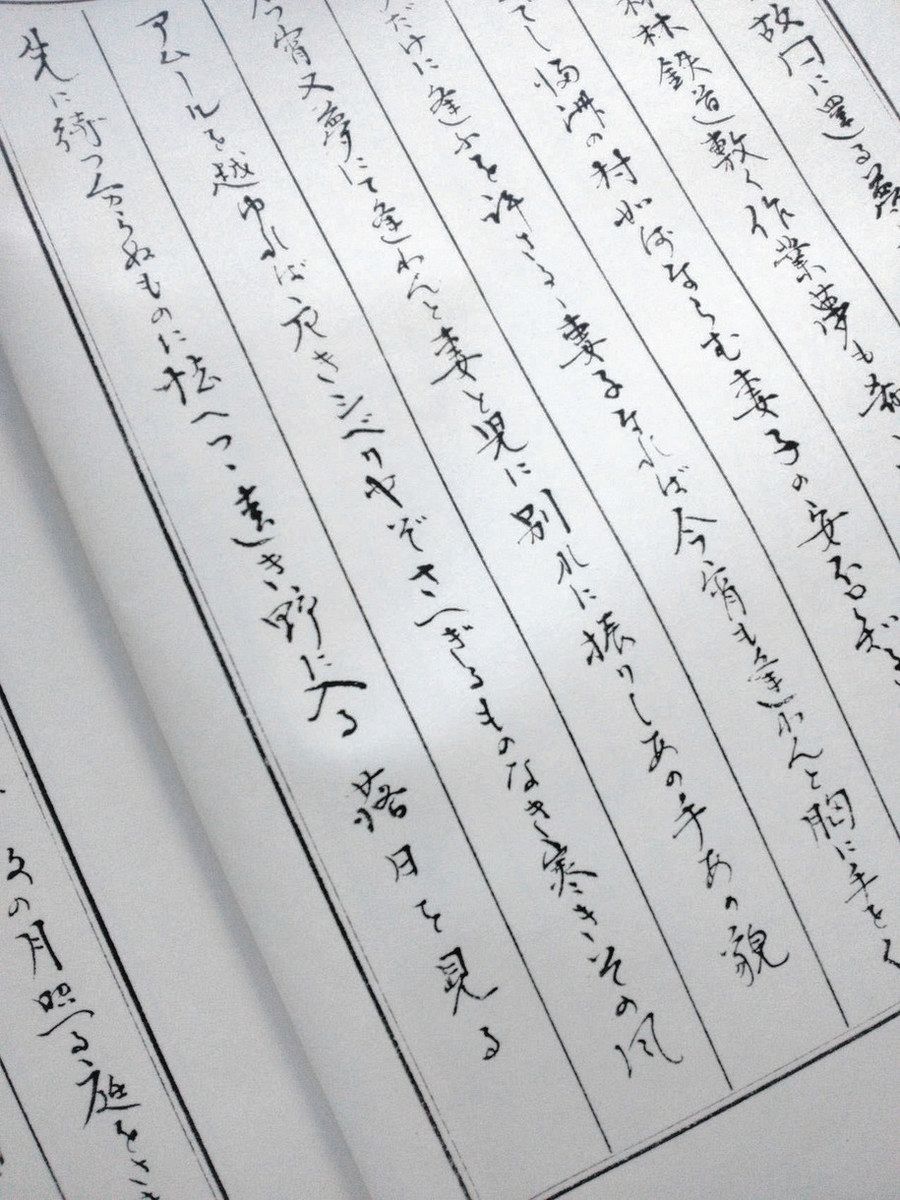 故国に還る
林鉄道敷く作業夢も
てし満洲の村如何ならむ妻子の安否
だけに逢ふを許さるゝ妻子なれば今宵も逢わんと胸に手を
今宵又夢にて逢わんと妻と児に別れに振りしあの手あの貌
アムールを越ゆれば広きシベリヤぞさへぎるものなき寒きその風
先に待つ分らぬものに怯へつゝ遠き野に入る落日を見る
の月照る庭を